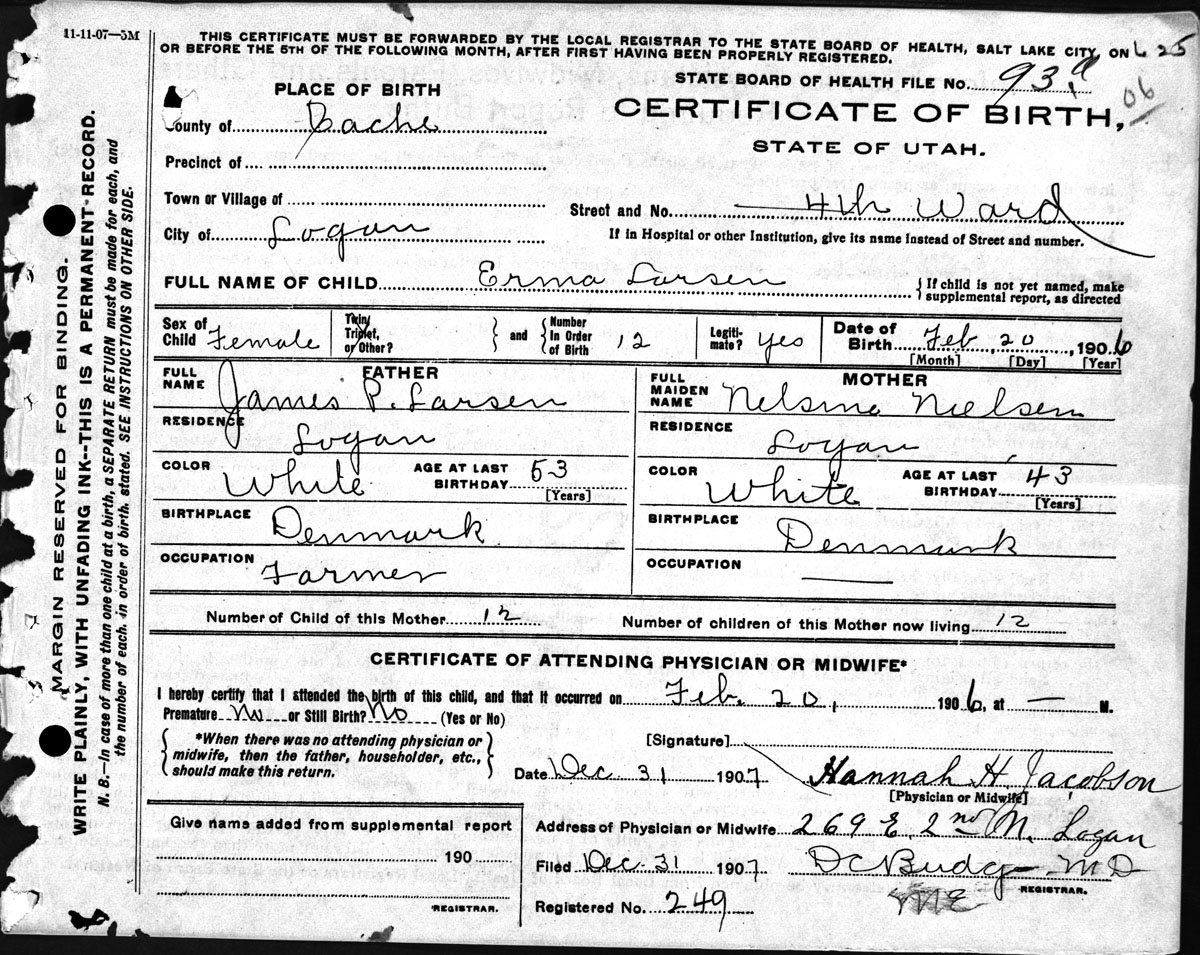 11-11-07—5M
THIS CERTIFICATE MUST BE FORWARDED BY THE LOCAL REGISTRAR TO THE STATE BOARD OF HEALTH, SALT LAKE CITY, ON
OR BEFORE THE 5TH OF THE FOLLOWING MONTH, AFTER FIRST HAVING BEEN PROPERLY REGISTERED.
625
STATE BOARD OF HEALTH FILE No. 93
06
PLACE OF BIRTH
CERTIFICATE OF BIRTH,
STATE OF UTAH.
County of Cache
Precinct of
Town or Village of
Street and No. 4th Ward
City of Logan
If in Hospital or other Institution, give its name instead of Street and number.
FULL NAME OF CHILD Erma Larsen
{If child is not yet named, make
supplemental report, as directed
Sex of Child Female
Twin, Triplet, or Other?
and
Number In Order of Birth 12
Legitimate? yes
Date of Birth Feb, 20, 1906
[Month] [Day] [Year]
FATHER
FULL NAME James P. Larsen
RESIDENCE Logan
COLOR White
AGE AT LAST BIRTHDAY 53
[Years]
BIRTHPLACE Denmark
OCCUPATION Farmer
MOTHER
FULL MAIDEN NAME Nelsine Nielsen
RESIDENCE Logan
COLOR White
AGE AT LAST BIRTHDAY 43
[Years]
BIRTHPLACE Denmark
OCCUPATION
Number of Child of this Mother 12
Number of children of this Mother now living 12
CERTIFICATE OF ATTENDING PHYSICIAN OR MIDWIFE*
I hereby certify that I attended the birth of this child, and that it occurred on Feb. 20, 1906, at — M.
Premature No or Still Birth? No (Yes or No)
{*When there was no attending physician or
midwife, then the father, householder, etc.,
should make this return.}
[Signature]
Date Dec 31 1907
Hannah H. Jacobson
[Physician or Midwife]
Give name added from supplemental report
190
REGISTRAR.
Address of Physician or Midwife 269 E 2nd N. Logan
Filed Dec. 31 1907
DC Budge MD
REGISTRAR.
Registered No. 249
MARGIN RESERVED FOR BINDING.
WRITE PLAINLY, WITH UNFADING INK--THIS IS A PERMANENT RECORD.
N. B.—In case of more than one child at a birth, a SEPARATE RETURN must be made for each, and
the number of each, in order of birth, stated. SEE INSTRUCTIONS ON OTHER SIDE.